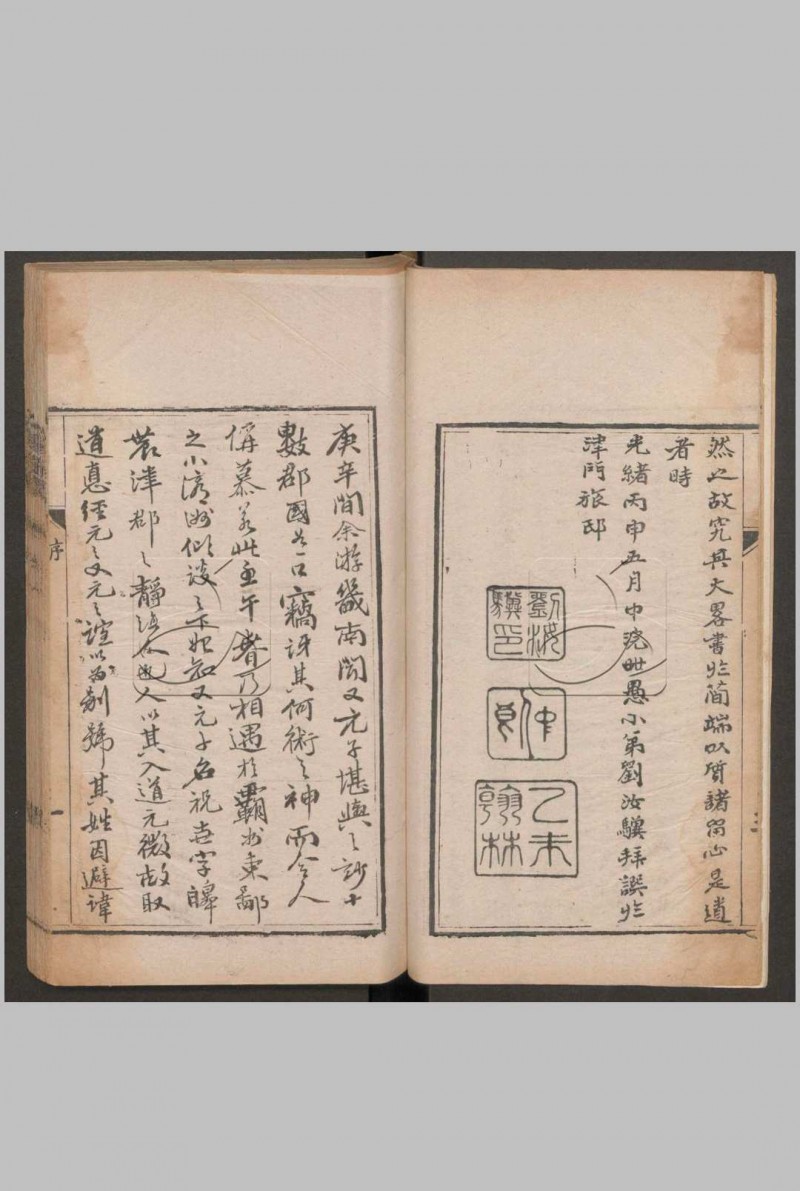 然之故究其大畧書於簡端以質諸畱心是道
者時
光緒丙申五月中浣世愚小弟劉汝驥拜譔於
津門旅邸
劉汝驥印
仲良
乙未翰林
庚辛間余游畿南聞又元子堪輿之訬十
數郡國如一口竊訝其何術之神而令人
傾慕若此壬午春乃相遇於霸州東鄙
之小 談之下始知又元子名祝 字 
 津郡之靜海人也人以其入道元微故取
道惪經元之又元之誼以為別號其姓因避諱
序
一